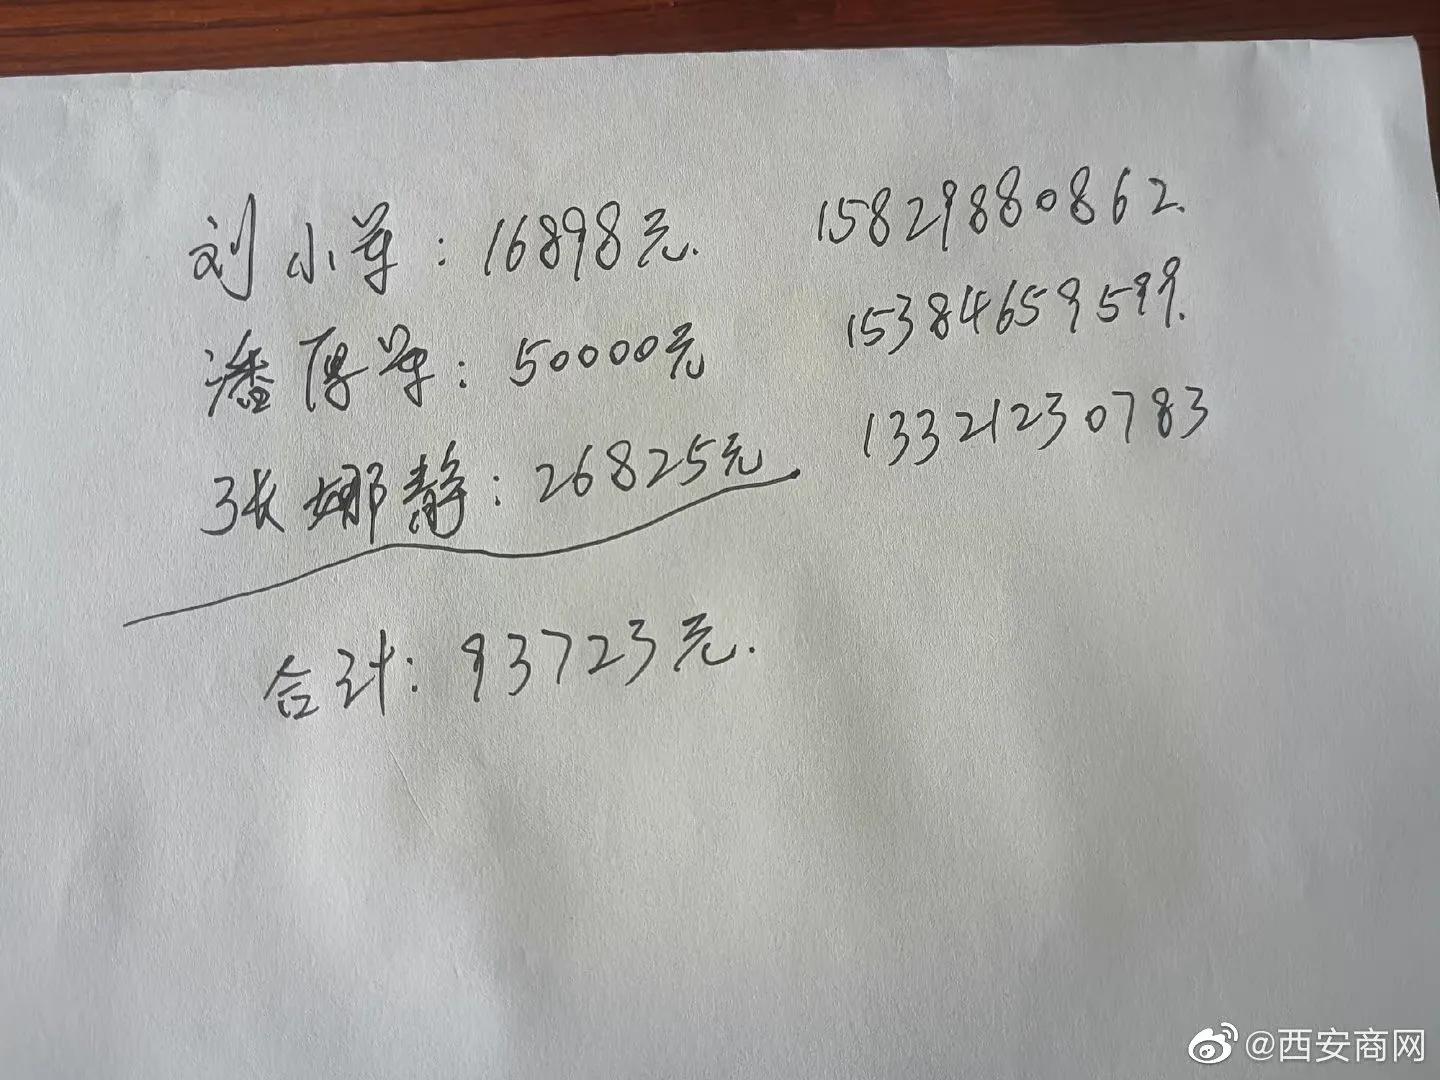 刘小军：16898元. 15829880862.
潘厚军：50000元 15384659599.
张娜静：26825元. 13321230783
合计：93723元.
@西安商网